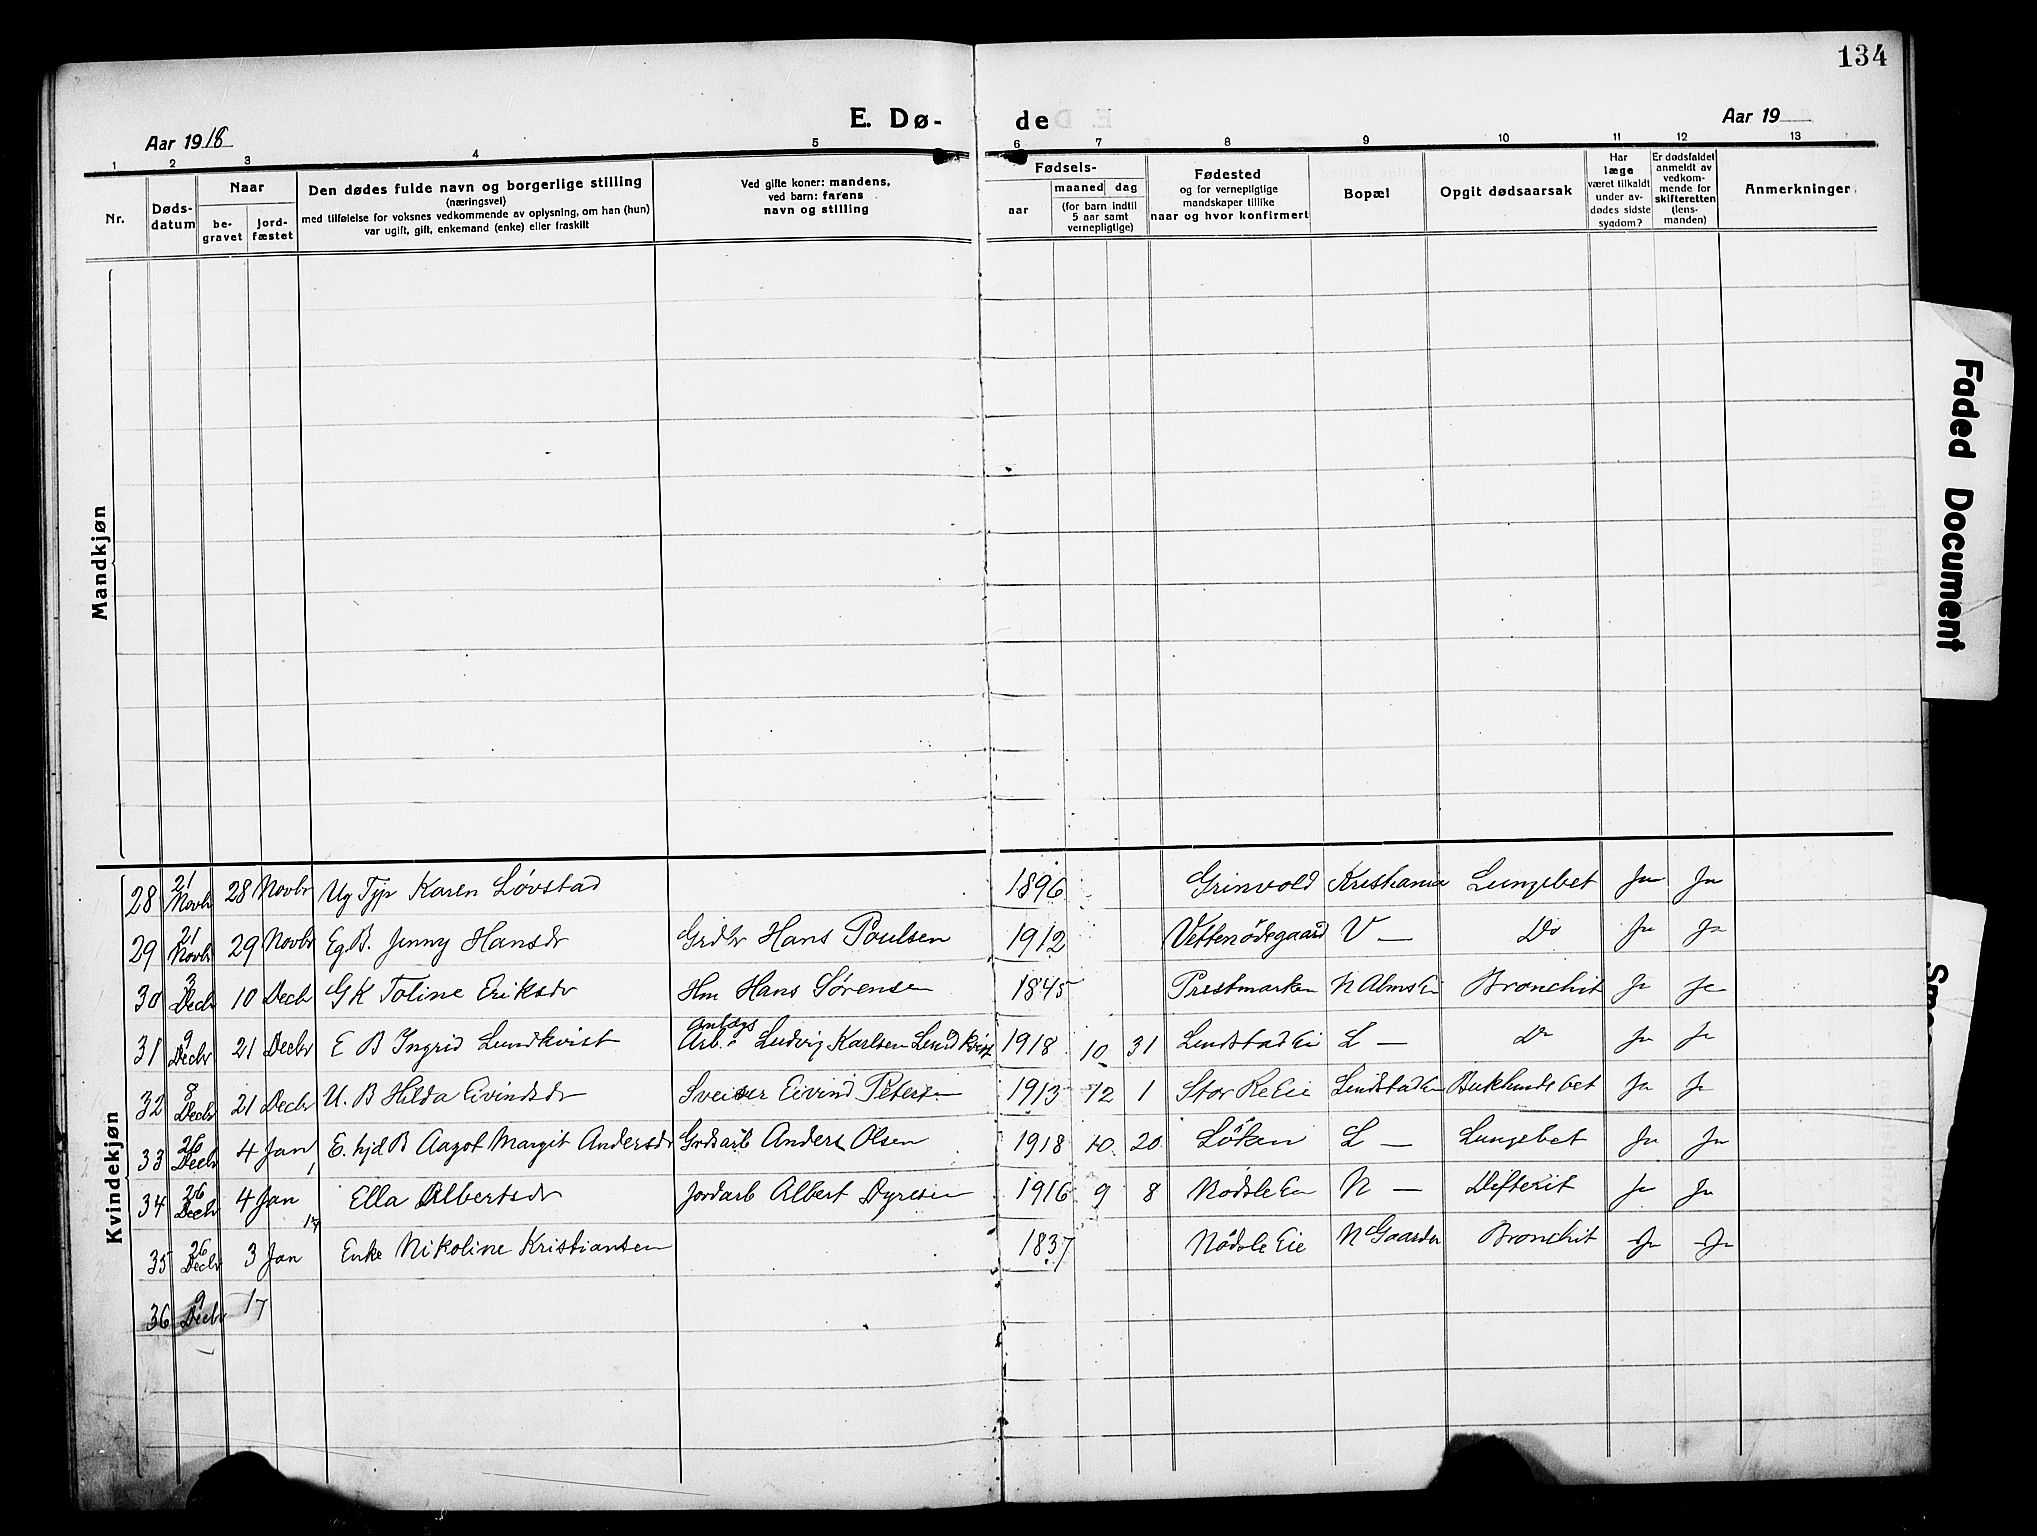 134
E. Dø- de
Aar 1918
Aar 19
1 2 3 4 5 6 7 8 9 10 11 12 13
Nr.
Døds-
datum
Naar
be-
gravet
jord-
fæstet
Den dødes fulde navn og borgerlige stilling
(næringsvei)
med tilføielse for voksnes vedkommende av oplysning, om han (hun)
var ugift, gift, enkemand (enke) eller fraskilt
Ved gifte koner: mandens,
ved barn: farens
navn og stilling
Fødsels-
aar
maaned dag
(for barn indtil
5 aar samt
vernepligtige)
Fødested
og for vernepligtige
mandskaper tillike
naar og hvor konfirmert
Bopæl
Opgit dødsaarsak
Har
læge
været tilkaldt
under av-
dødes sidste
sygdom?
Er dødsfaldet
anmeldt av
vedkom-
mende for
skifteretten
(lens-
manden)
Anmerkninger
Mandkjøn
Kvindekjøn
28 21 Novbr 28 Novbr Ug Typ Karen Løvstad 1896 Grinvold Kristiania Lungebet Ja Ja
29 21 Novbr 29 Novbr Eg B. Jenny Hansdr Grdbr Hans Poulsen 1912 Vettenødegaard V — Do Ja Ja
30 3 Decbr 10 Decbr G K Toline Eriksdr Hm Hans Sørensen 1845 Prestmarken N Alms Ei Bronchit Ja Ja
31 9 Decbr 21 Decbr E B Ingrid Lundkvist Anlægs Arb. Ludvig Karlsen Lundkvist 1918 10 31 Lundstad Ei L — Do Ja Ja
32 8 Decbr 21 Decbr U. B Hilda Eivindsdr Sveiser Eivind Petersen 1913 12 1 Stor Re Eie Lundstad Ei Bukhindebet Ja Ja
33 26 Decbr 4 Jan E. hjd B Aagot Margit Andersdr Grdsarb Anders Olsen 1918 10 20 Løken L — Lungebet Ja Ja
34 26 Decbr 4 Jan Ella Albertsdr Jordarb Albert Dyresen 1916 9 8 Nødsle Eie N — Difterit Ja Ja
35 26 Decbr 3 Jan 17 Enke Nikoline Kristiansen 1837 Nødsle Eie N Gaarder Bronchit Ja Ja
36 9 Decbr 17
Faded Document